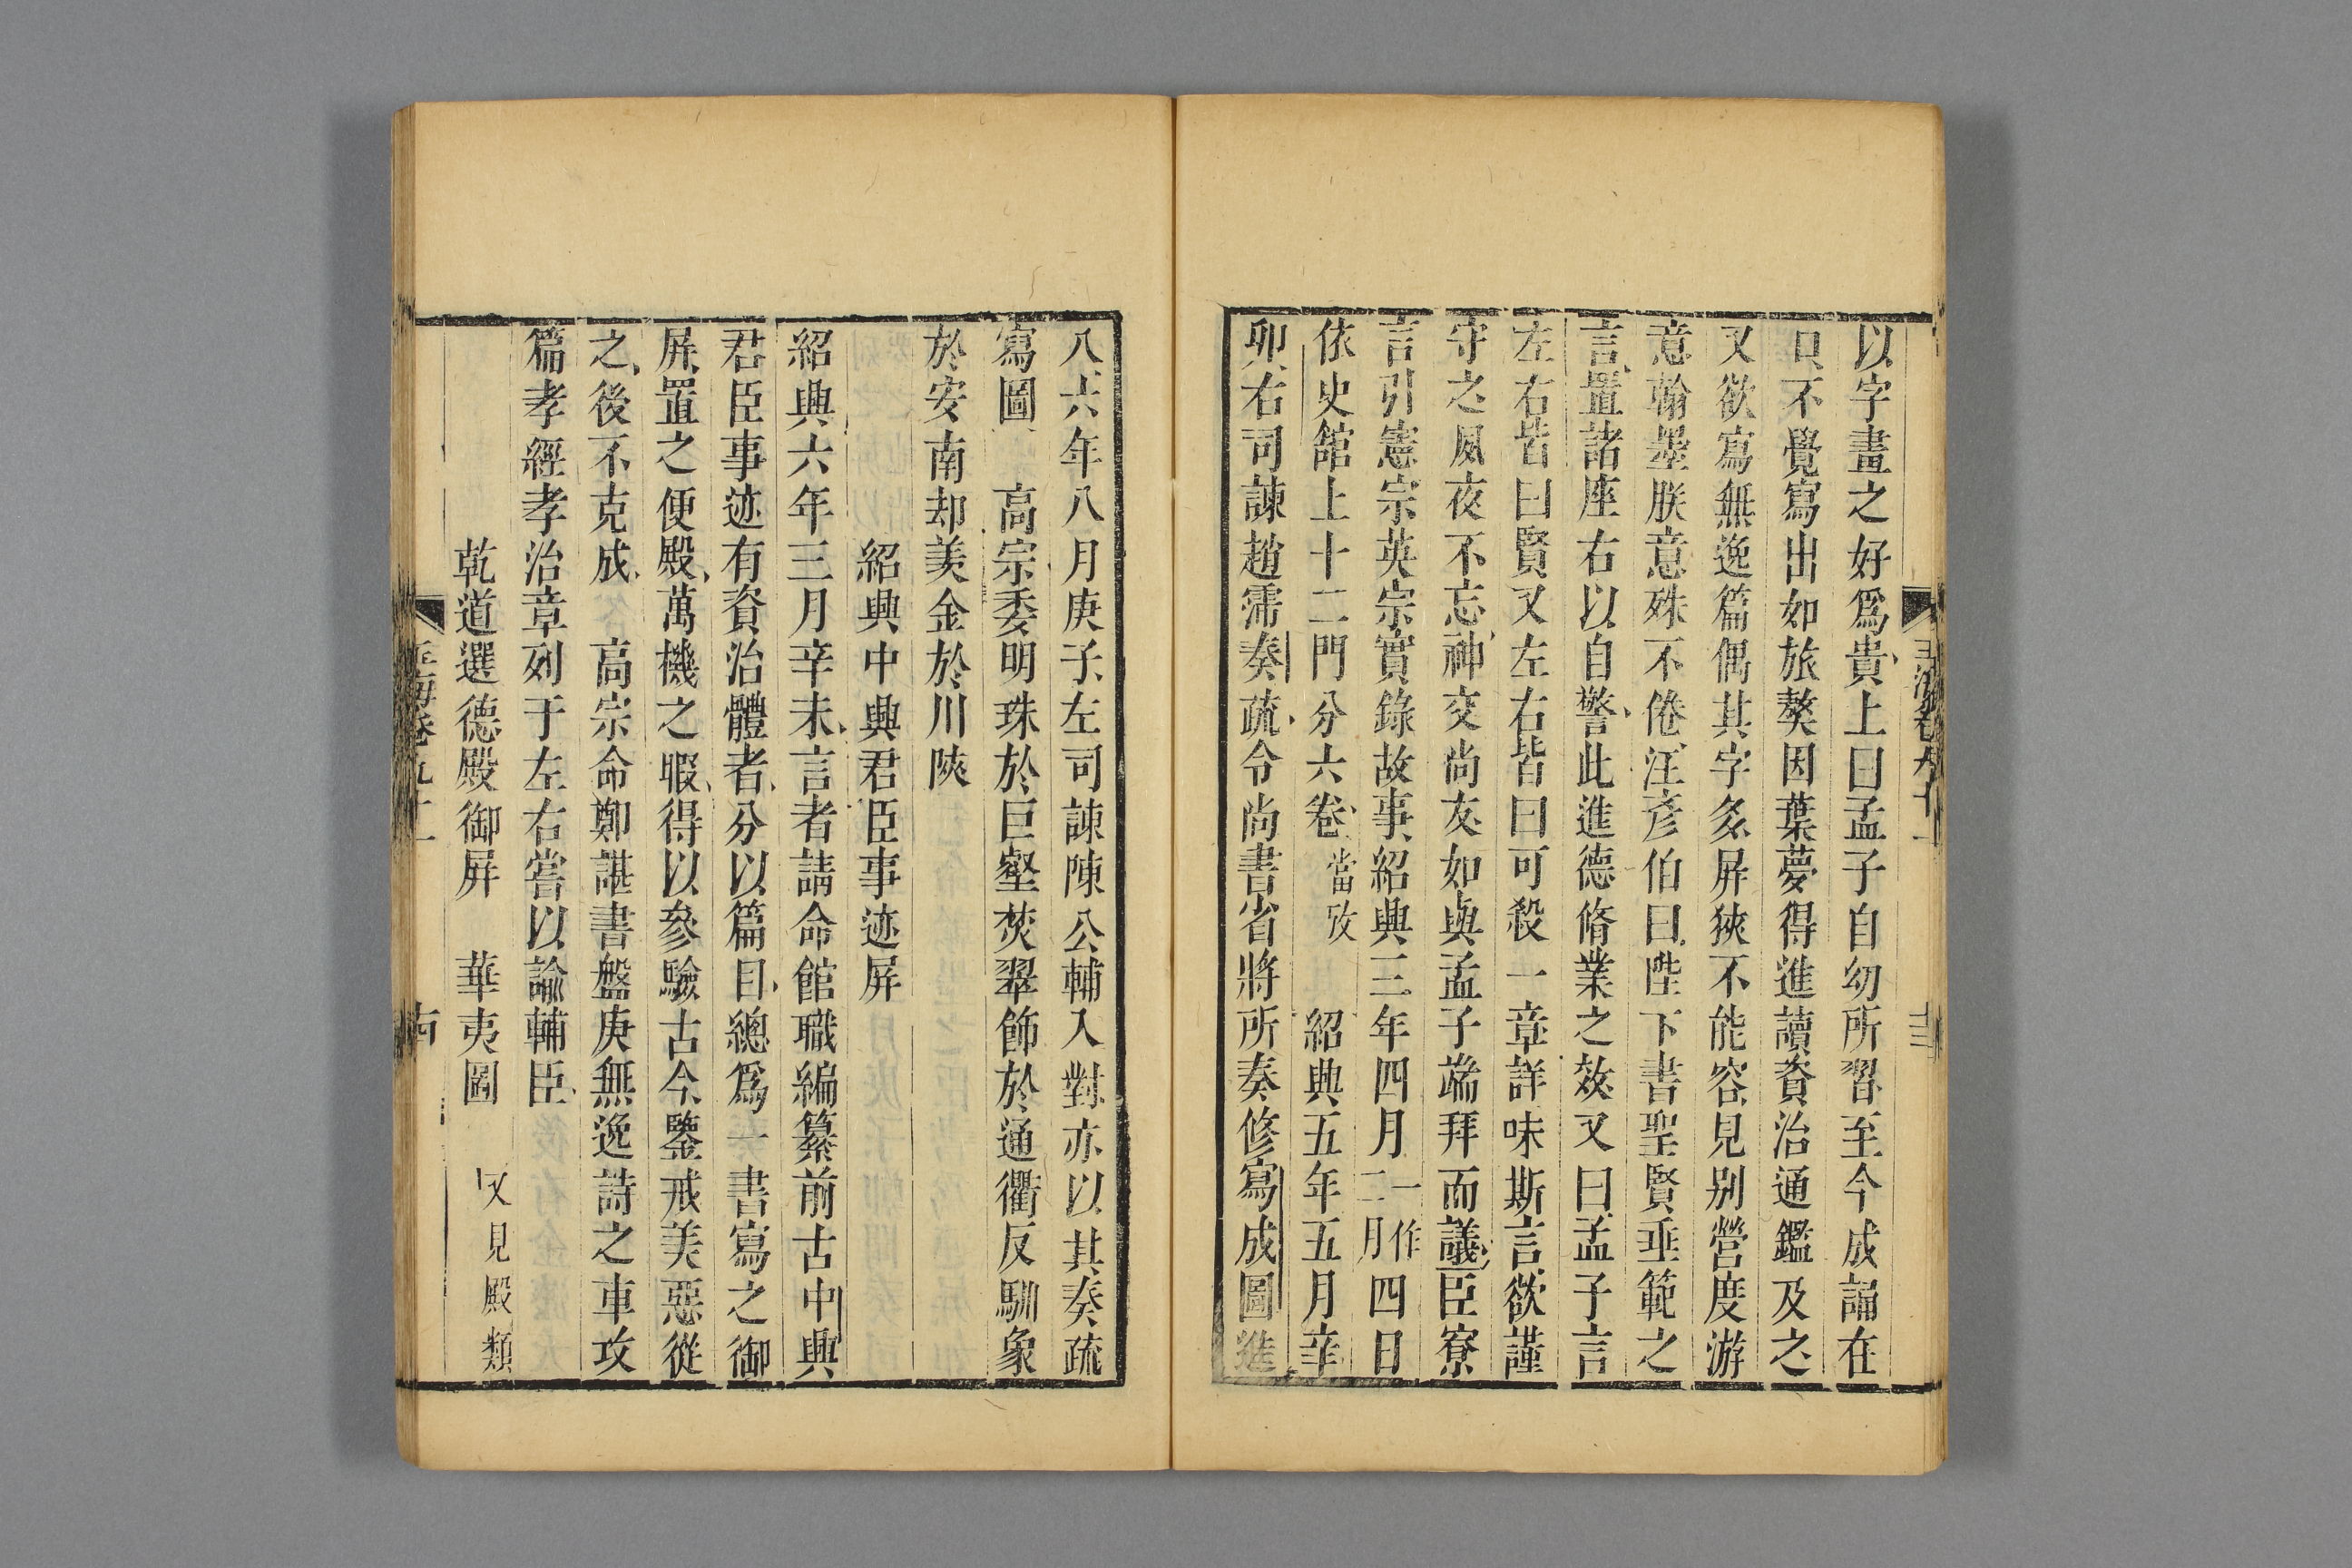 以字畫之好爲貴上曰孟子自幼所習至今成誦在
口不覺寫出如旅獒因葉夢得進讀資治通鑑及之
又欲寫無逸篇偶其字多屏狹不能容見别營度游
意翰墨朕意殊不倦汪彥伯曰陛下書聖賢垂範之
言置諸座右以自警此進德脩業之效又曰孟子言
左右皆曰賢又左右皆曰可殺一章詳味斯言欲謹
守之夙夜不忘神交尚友如與孟子端拜而議臣寮
言引憲宗英宗實錄故事紹興三年四月一作二月四日
依史館上十二門分六卷當攷 紹興五年五月辛
卯右司諫趙霈奏疏令尚書省將所奏修寫成圖進
八六年八月庚子左司諫陳公輔入對亦以其奏疏
寫圖 高宗委明珠於巨壑焚翠飾於通衢反馴象
於安南却美金於川陝
紹興中興君臣事迹屏
紹興六年三月辛未言者請命館職編纂前古中興
君臣事迹有資治體者分以篇目總爲一書寫之御
屏置之便殿萬機之暇得以參驗古今鑒戒美惡從
之後不克成 高宗命鄭諶書盤庚無逸詩之車攻
篇孝經孝治章列于左右嘗以諭輔臣
乾道選德殿御屏 華夷圖 又見殿類
玉海卷九十一
十四